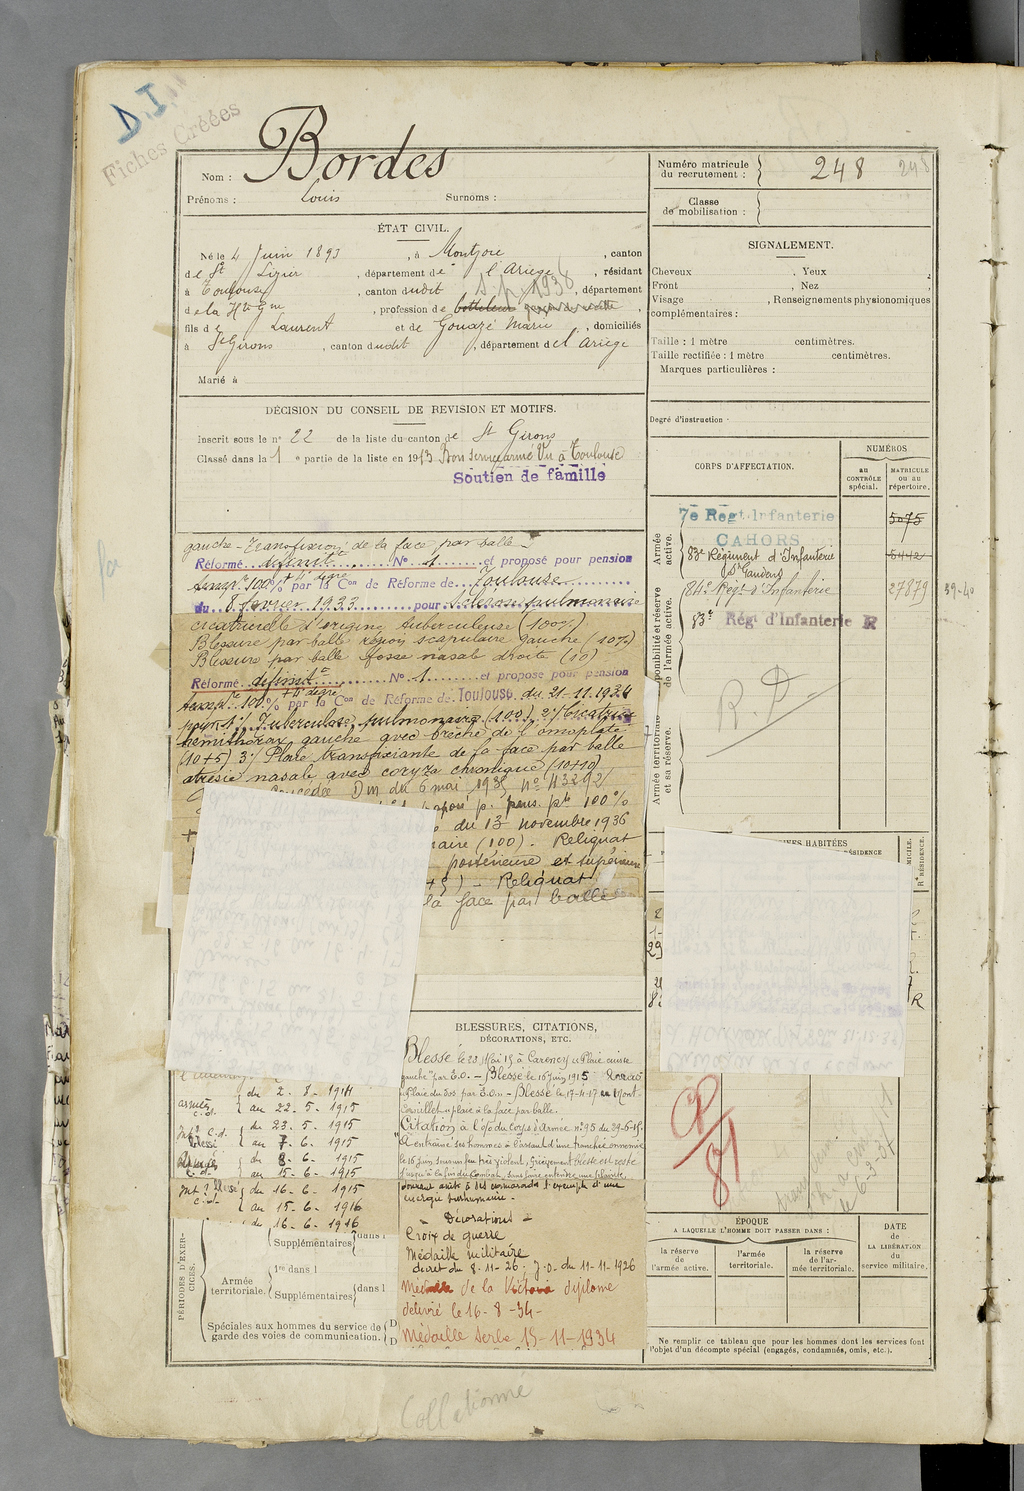 D.I.
Fiches Créées
Nom : Bordes
Prénoms : Louis Surnoms :
ÉTAT CIVIL.
Né le 4 Juin 1893, à Montjoie, canton
de St Lizier, département de l'Ariège, résidant
à Toulouse, canton dudit, département
de la Hte Gne, profession de
fils de Laurent et de Gouazé Marie, domiciliés
à St Girons, canton dudit, département de l'Ariège
Marié à
DÉCISION DU CONSEIL DE REVISION ET MOTIFS.
Inscrit sous le n° 22 de la liste du canton de St Girons
Classé dans la 1e partie de la liste en 1913 Bon service armé Vu à Toulouse
Soutien de famille
gauche - transfixion de la face par balle -
Réformé définitt N° 1 et proposé pour pension
100% + 4e degré par la Con de Réforme de Toulouse
du 8 février 1933 pour
cicatricielle d'origine tuberculeuse (100%)
Blessure par balle région scapulaire gauche (10%)
Blessure par balle fosse nasale droite (10)
Réformé définitt N° 1 et proposé pour pension
100% + 4e degré par la Con de Réforme de Toulouse du 21-11-1934
pour 1°/ Tuberculose pulmonaire (100) 2°/ Cicatrice
hémithorax gauche avec brèche de l'omoplate
(10+5) 3°/ Plaie transfixiante de la face par balle
atrésie nasale avec coryza chronique (10+10)
concédée Dm du 6 mai 1935 n° 113292
p. pens. pte 100%
du 13 novembre 1936
naire (100) - Reliquat
postérieure et supérieure
+5) - Reliquat
la face par balle
du 2-8-1914
armées c.d. au 22-5-1915
Int. c.d. du 23-5-1915
Blessé au 7-6-1915
Armées du 8-6-1915
c.d. au 15-6-1915
Int. Blessé du 16-6-1915
c.d. au 15-6-1916
du 16-6-1916
PÉRIODES D'EXERCICES.
Supplémentaires dans l
Armée territoriale.
1re dans l
Supplémentaires dans l
Spéciales aux hommes du service de garde des voies de communication.
BLESSURES, CITATIONS,
DÉCORATIONS, ETC.
Blessé le 23 Mai 15 à Carency "Plaie cuisse
gauche" par E.O. - Blessé le 16 Juin 1915
"Plaie du dos par E.O." - Blessé le 17-4-17 au Mont
Cornillet "plaie à la face par balle.
Citation à l'o/ du Corps d'Armée n° 95 du 29-6-15.
"A entraîné ses hommes à l'assaut d'une tranchée ennemie
le 16 juin sous un feu très violent, grièvement blessé est resté
jusqu'à la fin du Combat, sans faire entendre une plainte
donnant ainsi à ses camarades l'exemple d'une
énergie surhumaine -
- Décorations -
Croix de guerre
Médaille militaire
décret du 8-11-26. J.O. du 11-11-1926
Médaille de la Victoire diplôme
délivré le 16-8-34-
Médaille Serbe 15-11-1934
Numéro matricule du recrutement : 248 248
Classe de mobilisation :
SIGNALEMENT.
Cheveux , Yeux ,
Front , Nez ,
Visage , Renseignements physionomiques
complémentaires :
Taille : 1 mètre centimètres.
Taille rectifiée : 1 mètre centimètres.
Marques particulières :
Degré d'instruction -
CORPS D'AFFECTATION.
NUMÉROS
au CONTRÔLE spécial.
MATRICULE ou au répertoire.
Armée active.
7e Régt. Infanterie 5075
CAHORS
83e Régiment d'Infanterie 5442
St Gaudens
84e Régt d'Infanterie 27879 39-40
83e Régt d'Infanterie R
ponibilité et réserve de l'armée active.
Armée territoriale et sa réserve.
R. D.
NES HABITÉES
SIDENCE
R RÉSIDENCE.
CP/81
le 6-3-37
ÉPOQUE
A LAQUELLE L'HOMME DOIT PASSER DANS :
la réserve de l'armée active.
l'armée territoriale.
la réserve de l'armée territoriale.
DATE de LA LIBÉRATION du service militaire.
Ne remplir ce tableau que pour les hommes dont les services font
l'objet d'un décompte spécial (engagés, condamnés, omis, etc.).
Collationné